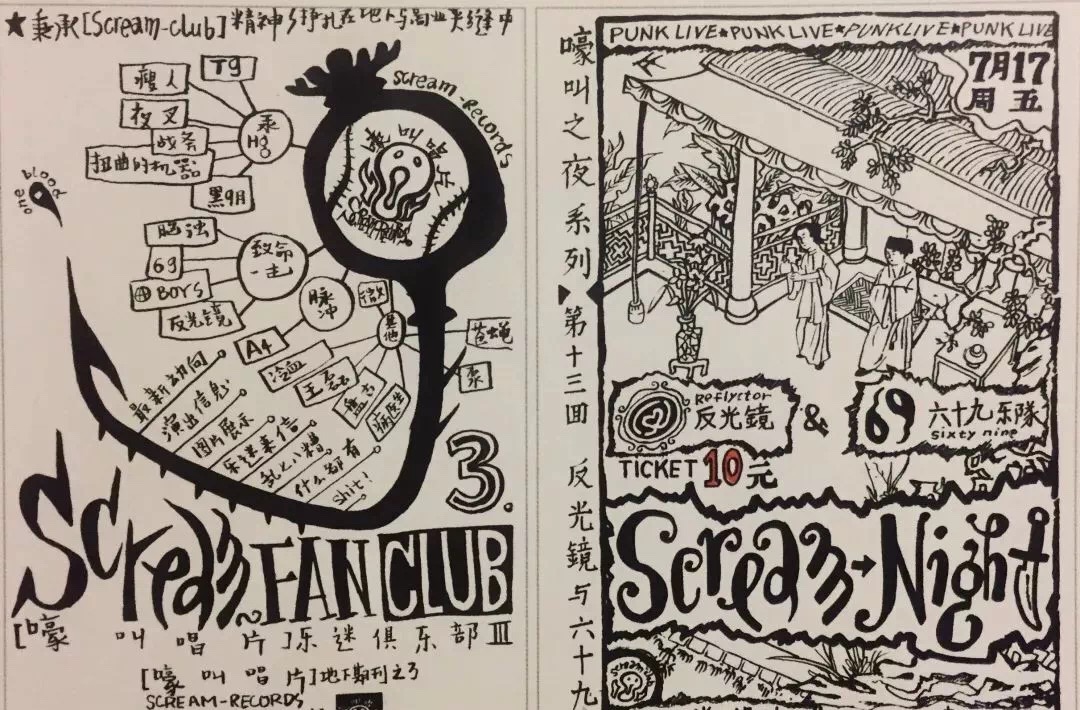 ★秉承[Scream-club]精神 挣扎在地下与商业夹缝中
瘦人
T9
夜叉
战斧
扭曲的机器
黑9月
汞
Hg
scream-Records
嚎叫唱片
one blood
脑浊
69
BOYS
反光镜
致命一击
脉冲
微
其他
苍蝇
A4
冷血
王磊
盘古
病医生
最新动向
演出信息
图片展示
乐迷来信
乱七八糟
什么都有
shit!
3.
Scream
FAN CLUB
[嚎叫唱片]乐迷俱乐部III
[嚎叫唱片]地下期刊之3
SCREAM-RECORDS
嚎叫之夜系列 第十三回 反光鏡与六十九
PUNK LIVE★PUNK LIVE★PUNK LIVE★PUNK LIVE
7月17
周五
Reflyctor
反光鏡
&
69
六十九乐隊
sixty nine
TICKET 10元
Scream→Night